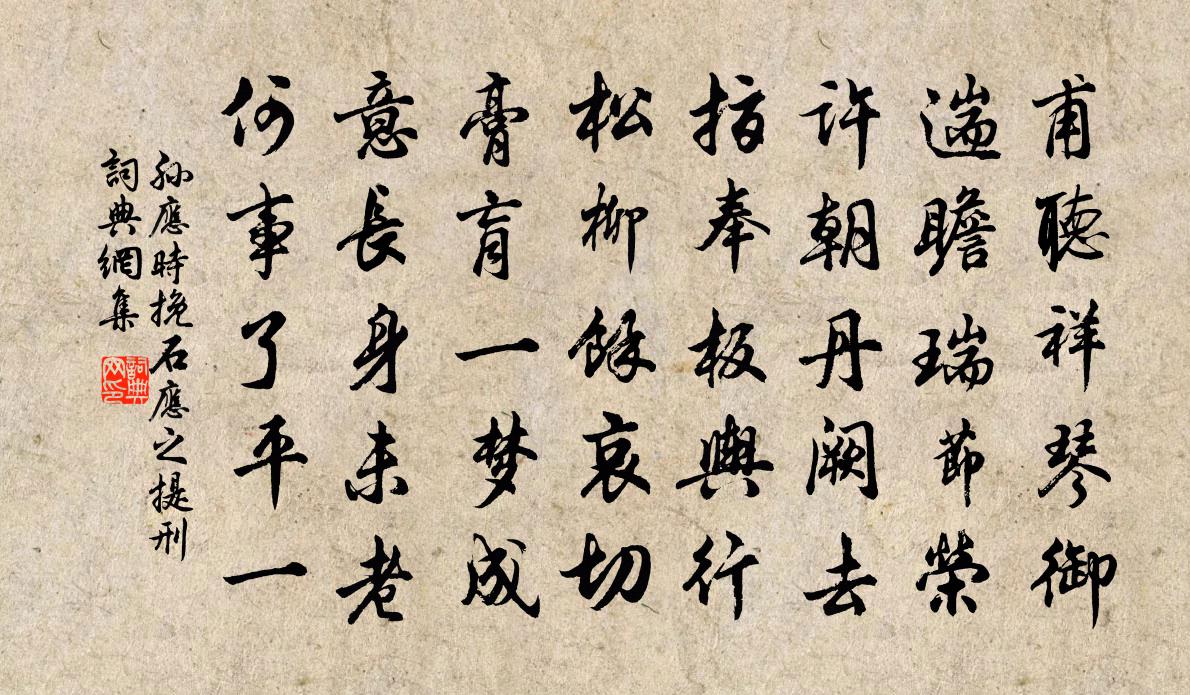 甫聽祥琴御
遄瞻瑞節榮
許朝丹闕去
指奉板輿行
松柳餘哀切
膏肓一梦成
意長身未老
何事了平一
孙應時挽石應之提刑
詞典網集
詞典网印